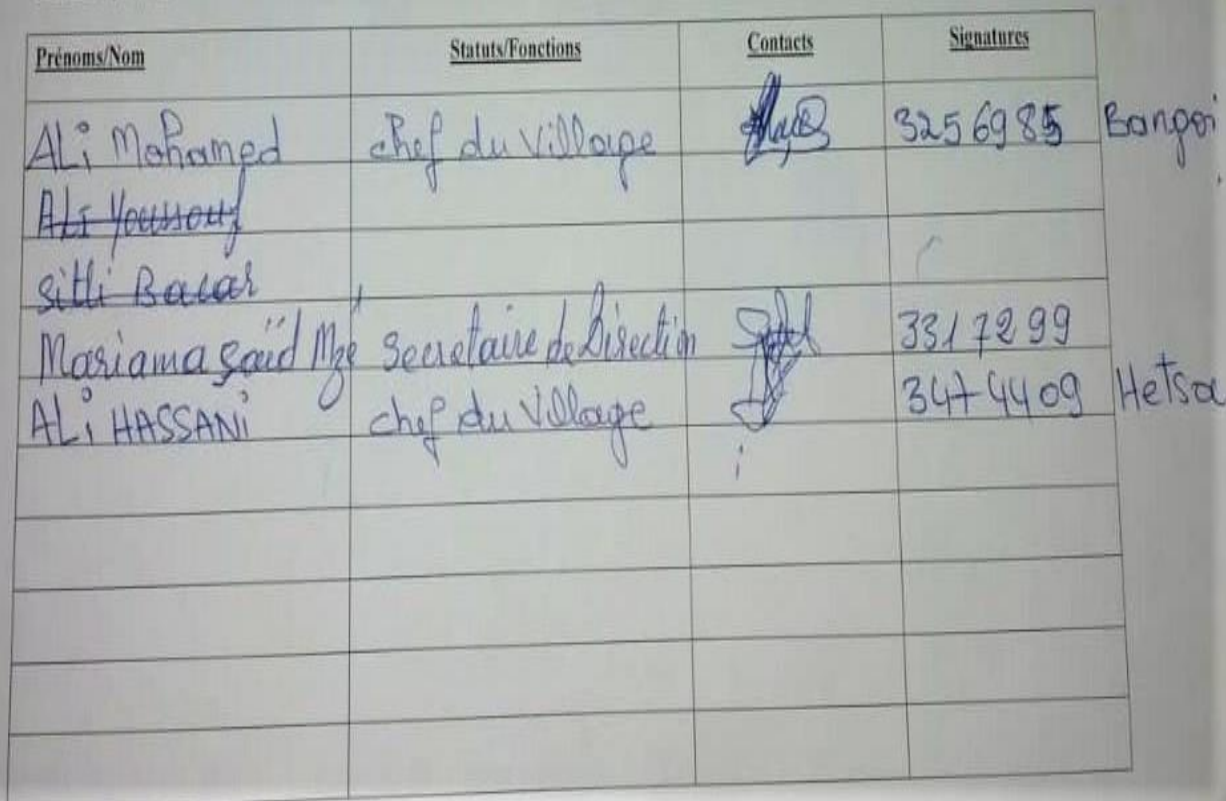 Prénoms/Nom Statuts/Fonctions Contacts Signatures
ALi Mohamed chef du village 3256985 Bangoi
ALI Youssouf
Sitti Bacar
Mariama Saïd Mzé Secretaire de Direction 3317299
ALi HASSANi chef du village 3474409 Hetsa